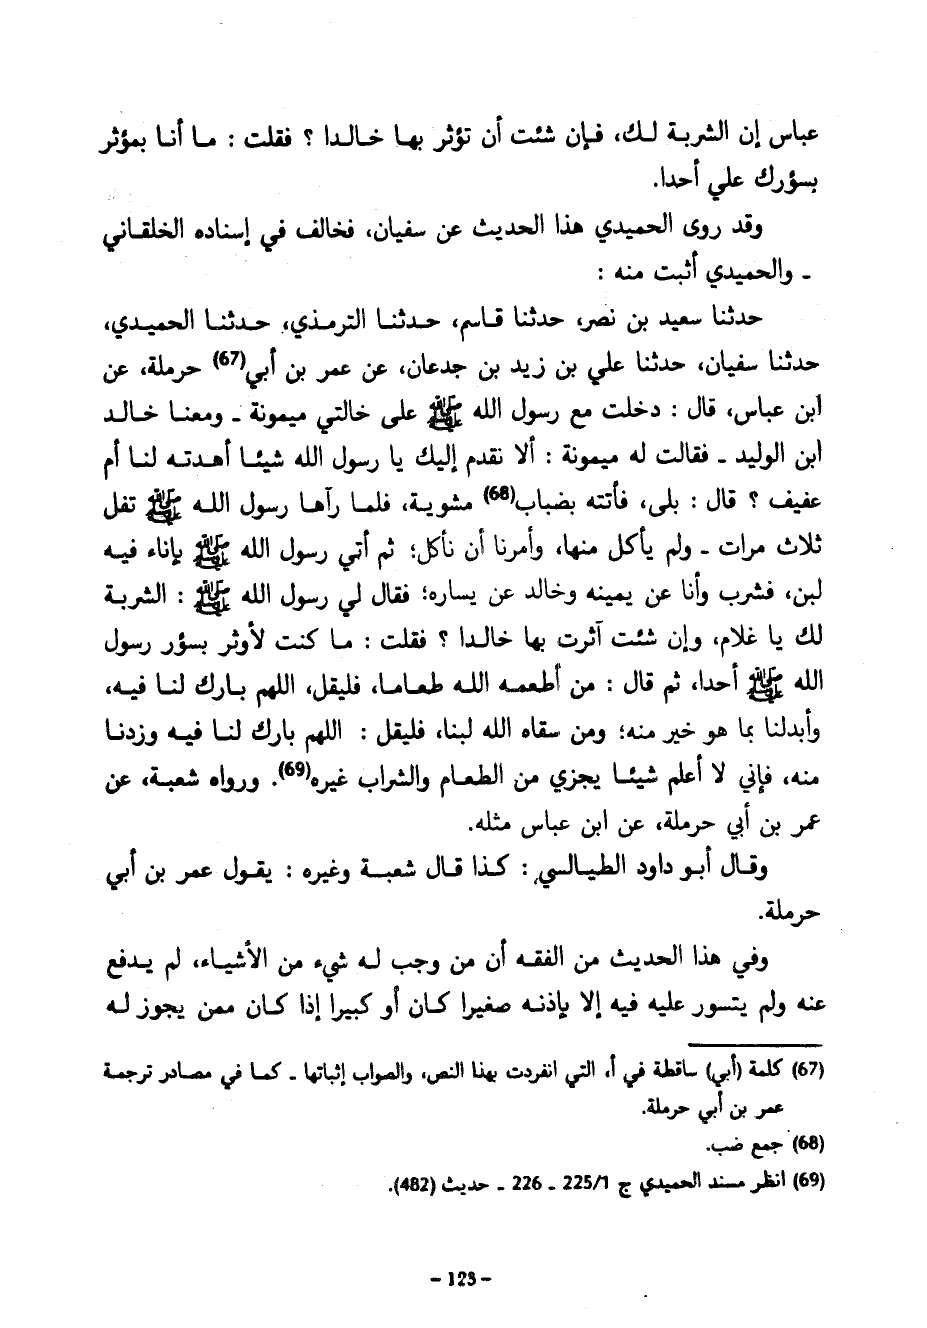 عباس إن الشربة لك، فإن شئت أن تؤثر بها خالدا ؟ فقلت : ما أنا بمؤثر
بسؤرك علي أحدا.
وقد روى الحميدي هذا الحديث عن سفيان، فخالف في إسناده الخلقاني
ـ والحميدي أثبت منه :
حدثنا سعيد بن نصر، حدثنا قاسم، حدثنا الترمذي، حدثنا الحميدي،
حدثنا سفيان، حدثنا علي بن زيد بن جدعان، عن عمر بن أبي(67) حرملة، عن
ابن عباس، قال : دخلت مع رسول الله ﷺ على خالتي ميمونة ـ ومعنا خالد
ابن الوليد ـ فقالت له ميمونة : ألا نقدم إليك يا رسول الله شيئا أهدته لنا أم
عفيف ؟ قال : بلى، فأتته بضباب(68) مشوية، فلما رآها رسول الله ﷺ تفل
ثلاث مرات ـ ولم يأكل منها، وأمرنا أن نأكل؛ ثم أتي رسول الله ﷺ بإناء فيه
لبن، فشرب وأنا عن يمينه وخالد عن يساره؛ فقال لي رسول الله ﷺ : الشربة
لك يا غلام، وإن شئت آثرت بها خالدا ؟ فقلت : ما كنت لأوثر بسؤر رسول
الله ﷺ أحدا، ثم قال : من أطعمه الله طعاما، فليقل، اللهم بارك لنا فيه،
وأبدلنا بما هو خير منه؛ ومن سقاه الله لبنا، فليقل : اللهم بارك لنا فيه وزدنا
منه، فإني لا أعلم شيئا يجزي من الطعام والشراب غيره(69). ورواه شعبة، عن
عمر بن أبي حرملة، عن ابن عباس مثله.
وقال أبو داود الطيالسي : كذا قال شعبة وغيره : يقول عمر بن أبي
حرملة.
وفي هذا الحديث من الفقه أن من وجب له شيء من الأشياء، لم يدفع
عنه ولم يتسور عليه فيه إلا بإذنه صغيرا كان أو كبيرا إذا كان ممن يجوز له
(67) كلمة (أبي) ساقطة في أ، التي انفردت بهذا النص، والصواب إثباتها ـ كما في مصادر ترجمة
عمر بن أبي حرملة.
(68) جمع ضب.
(69) انظر مسند الحميدي ج 225/1 ـ 226 ـ حديث (482).
- 123 -